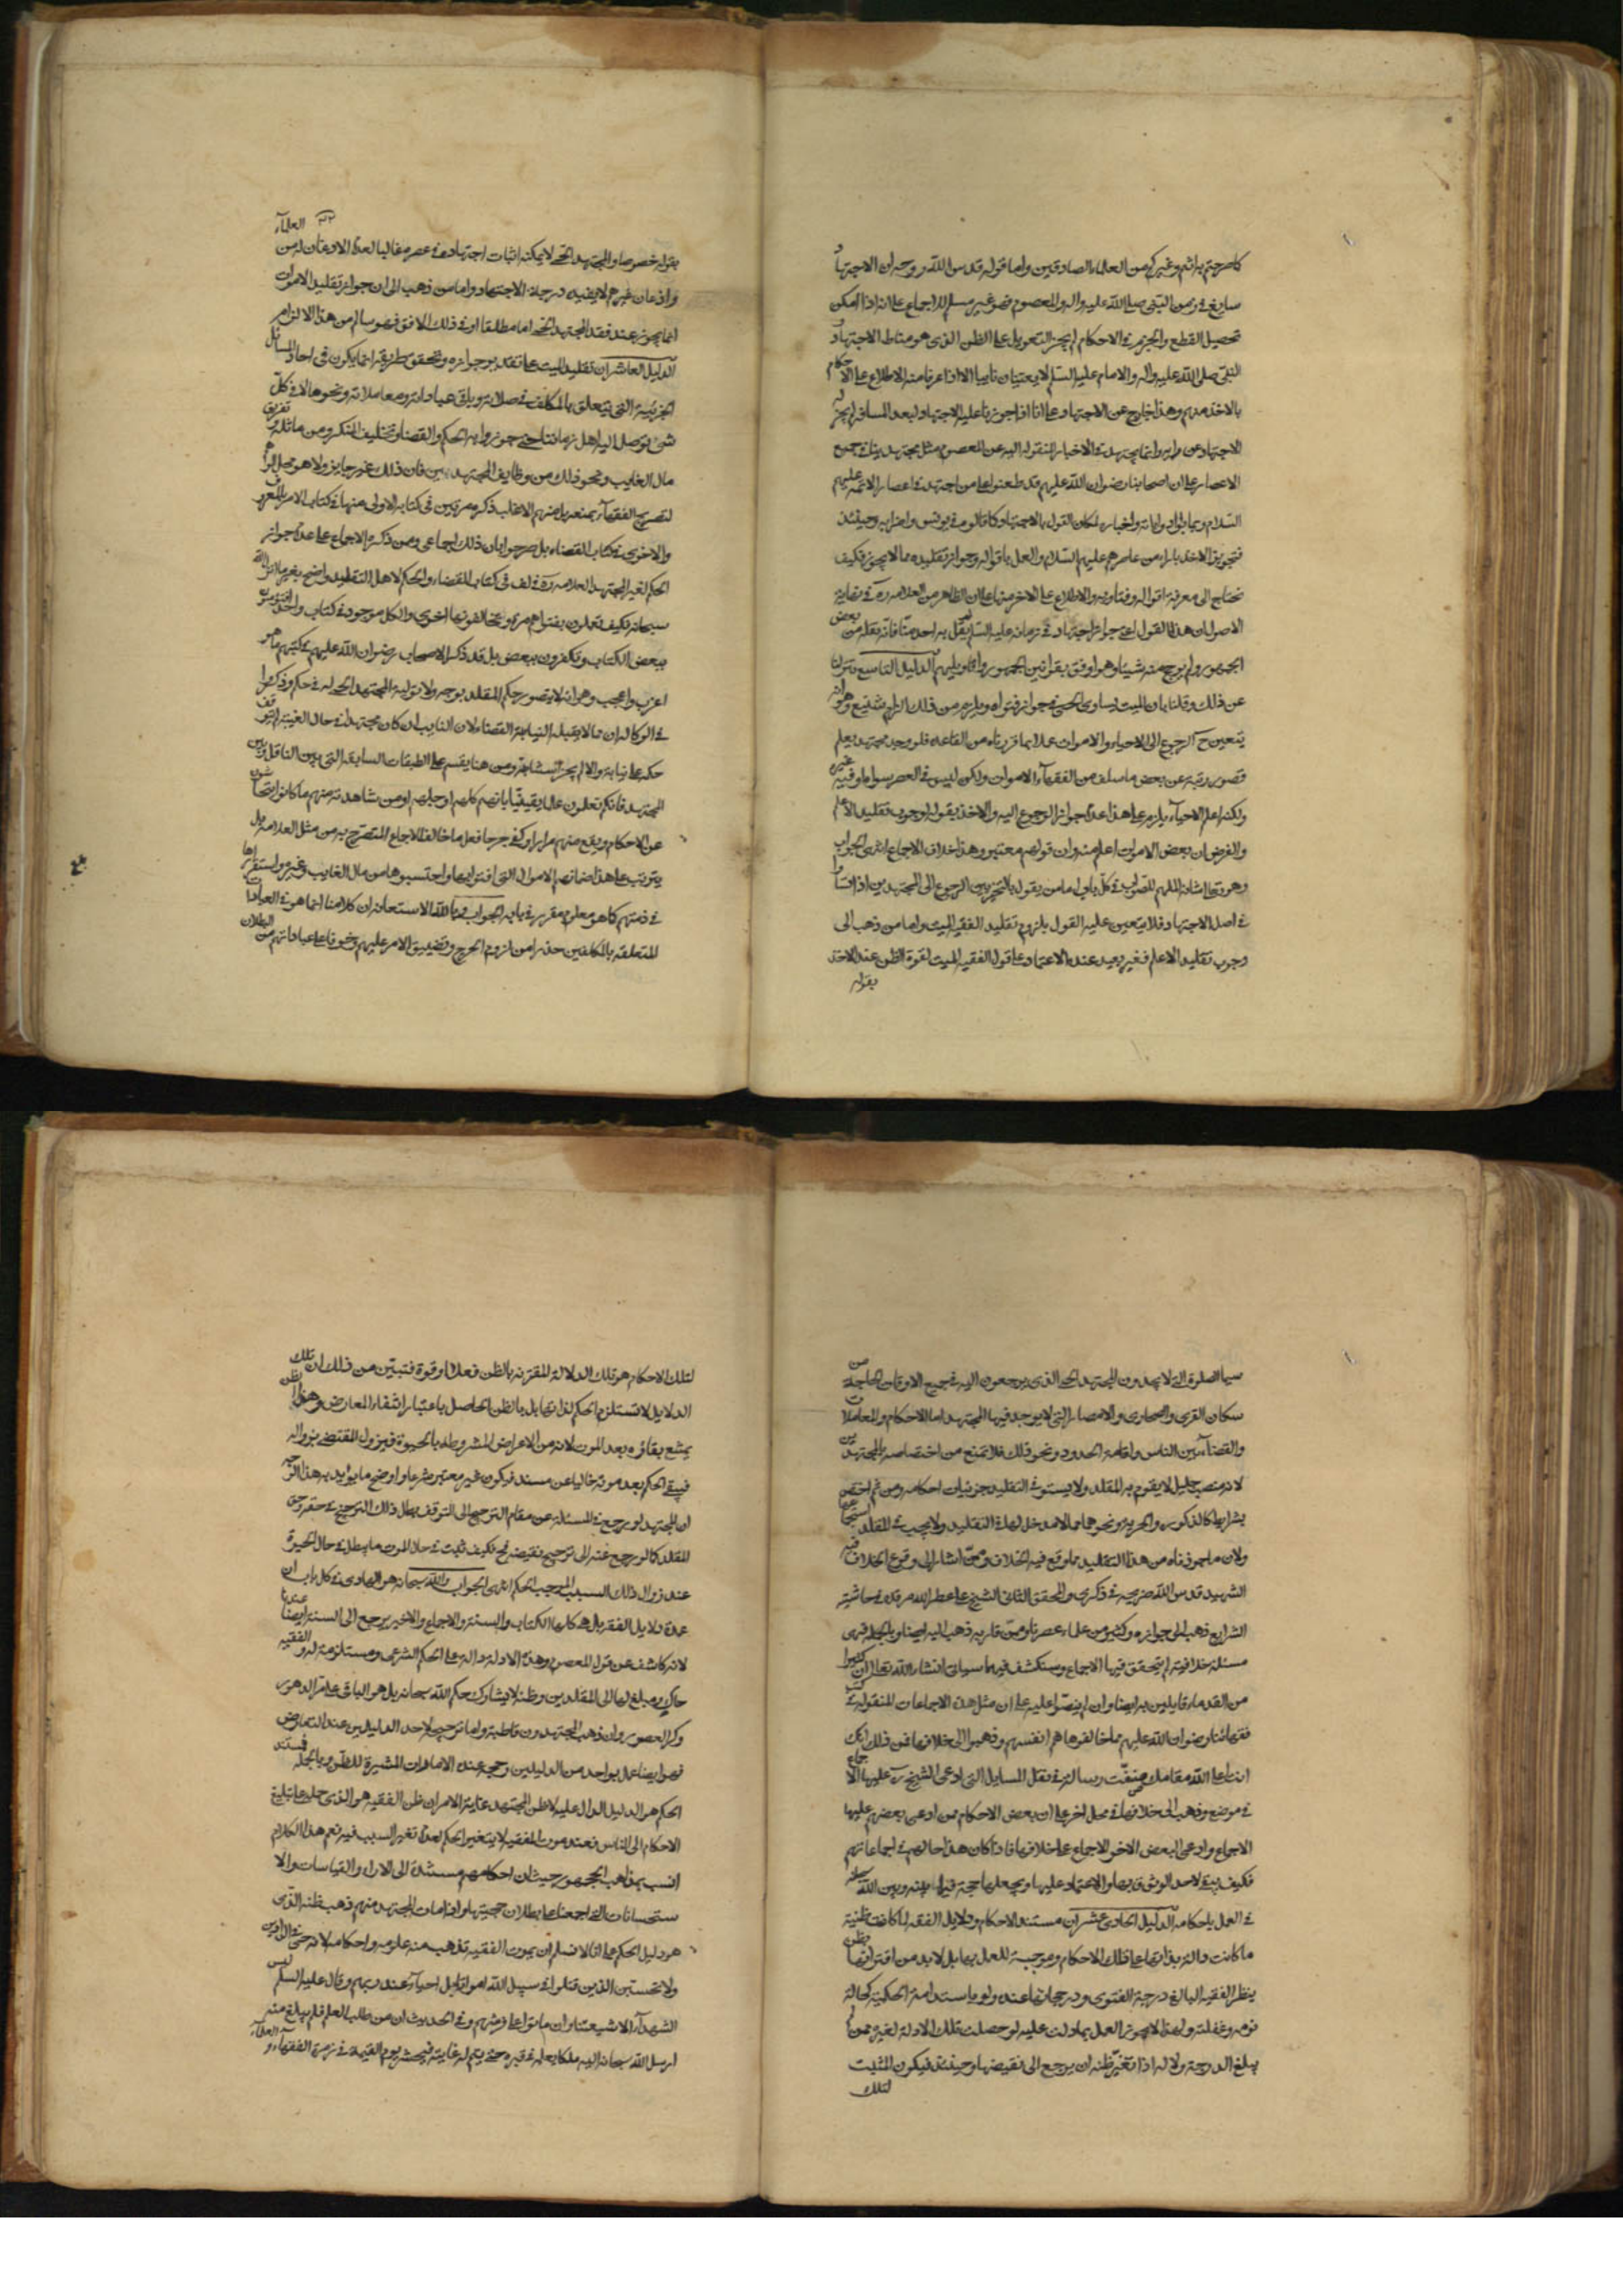 كما صرحتم به انتم وغيركم من العلماء الصادقين واما قوله قدس الله روحه ان الاجتهاد
سايغ في زمن النبي صلى الله عليه واله والمعصوم فهو غير مسلم للاجماع على انه اذا امكن
تحصيل القطع والجزم في الاحكام لم يجز التعويل على الظن الذي هو مناط الاجتهاد
النبي صلى الله عليه واله والامام عليه السلم لا يعتبان نايبا الا اذا عرفا منه الاطلاع على الاحكام
بالاخذ منهم وهذا خارج عن الاجتهاد على انا اذا جوزنا عليه الاجتهاد لبعد المسافة لم يجز له
الاجتهاد عن رايه وانما يجتهد في الاخبار المنقولة اليه عن المعصوم مثل مجتهدينا في جميع
الاعصار على ان اصحابنا رضوان الله عليهم قد طعنوا على من اجتهد في اعصار الائمة عليهم
السلام وربما طوا رواياته واخباره لمكان القول بالاجتهاد كما قالوه في يونس واضرابه وحينئذ
فتجويز الاخذ باراء من عاصرهم عليهم السلام والعمل باقواله وجواز تقليده مما لا يجوز فكيف
نحتاج الى معرفة اقواله وفتاويه والاطلاع على الاخر منها على ان الظاهر من العلامة ره في نهاية
الاصول ان هذا القول اعني جواز اجتهاد في زمانه عليه السلم لم يقل به احد منا فانه نقله من بعض
الجمهور ولم يرجح منه شيئا وهو اوفق بقوانين الجمهور واقاويلهم الدليل التاسع نزلنا
عن ذلك وقلنا بان الميت يساوي الحي في جواز فتواه ويلزم من ذلك الزام شنيع وهو انه
يتعين ح الرجوع الى الاحياء والاموات عملا بما قررناه من القاعدة فلو وجد مجتهد يعلم
قصور رتبته عن بعض ما سلف من الفقهاء الاموات ولكن ليس في العصر سواه او فيه غيره
ولكنه اعلم الاحياء يلزم على هذا عدم جواز الرجوع اليه والاخذ بقوله لوجوب تقليد الاعلم
والفرض ان بعض الاموات اعلم منه وان قولهم معتبر وهذا خلاف الاجماع انتهى الجواب
وهو تعالى شانه الملهم للصواب في كل باب اما من يقول بالتخيير بين الرجوع الى المجتهدين اذا تساووا
في اصل الاجتهاد فلا يتعين عليه القول بلزوم تقليد الفقيه الميت واما من ذهب الى
وجوب تقليد الاعلم فغير بعيد عنده الاعتماد على قول الفقيه الميت لقوة الظن عند الاخذ
بقوله
٢٢ العلماء
بقوله خصوصا والمجتهد الحي لا يمكنه اثبات اجتهاده في عصره غالبا لعدم الاذعان له من
واذعان غيرهم لا يفيده درجة الاجتهاد واما من ذهب الى ان جواز تقليد الاموات
انما يجوز عند فقد المجتهد الحي اما مطلقا او في ذلك الافق فهو سالم من هذا الالزام
الدليل العاشر ان تقليد الميت على تقدير جوازه وتحقق طريقه انما يكون في احاد المسائل
الجزئية التي يتعلق بالمكلف في صلاته وباقي عباداته ومعاملاته ونحوها لا في كل
شيء توصل اليه اهل زماننا حتى جوزوا به الحكم والقضاء وتحليف المنكر ومن ماثله وتفريق
مال الغايب ونحو ذلك من وظايف المجتهدين فان ذلك غير جايز ولا هو محل الوهم
لتصريح الفقهاء بمنعه بل منهم الاغلب ذكره مرتين في كتابه الاولى منها في كتاب الامر بالمعروف
والاخرى في كتاب القضاء بل صرحوا بان ذلك اجماعي وممن ذكر الاجماع على عدم جواز
الحكم لغير المجتهد العلامة ره في لف في كتاب القضاء والحكم لاهل التقليد واضح بغير ما انزل الله
سبحانه فكيف تعملون بفتواهم مرة وتخالفونها اخرى والكل موجود في كتاب واحد افتؤمنون
ببعض الكتاب وتكفرون ببعض بل قد ذكر الاصحاب رضوان الله عليهم في كتبهم ما هو
اغرب واعجب وهو انه لا يتصور حكم المقلد بوجه ولا بتولية المجتهد الحي له في حكم وذكروا
في الوكالة ان مما لا يقبل النيابة القضاء لان النايب ان كان مجتهدا في حال الغيبة لم يتوقف
حكمه على نيابة والا لم يجز استنابته ومن هنا يقسم على الطبقات السابقة التي بين الناقل وبين
المجتهد فانكم تعلمون علما يقينيا بانهم كلهم او جلهم او من شاهدته منهم ما كانوا يتحاشون
عن الاحكام ويقع منهم مرارا وكفى جرحا فعل ما خالف الاجماع المتصرح به من مثل العلامة بل
يترتب على هذا ضمانهم الاموال التي افتوا بها واحتسبوها من مال الغايب وغيره واستقرارها
في ذمتهم كما هو معلوم مقرر في بابه الجواب وبالله الاستعانة ان كلامنا انما هو في العبادات
المتعلقة بالمكلفين حذرا من لزوم الحرج وتضييق الامر عليهم وخوفا على عباداتهم من البطلان
سيما الصلوة التي لا يجدون المجتهد الحي الذي يرجعون اليه في جميع الاوقات الحاجة من
سكان القرى والصحارى والامصار التي لا يوجد فيها المجتهد اما الاحكام والمعاملات
والقضاء بين الناس واقامة الحدود ونحو ذلك فلا نمنع من اختصاصه بالمجتهدين
لانه منصب جليل لا يقوم به المقلد ولا يستوفي التقليد جزئيات احكامه ومن ثم اختص
بشرايط كالذكورة والحرية ونحوهما مما لا مدخل لها في التقليد ولا يجب في المقلد استجماعها
ولان ما جوزناه من هذا التقليد مما وقع فيه الخلاف وممن اشار الى وقوع الخلاف فيه
الشهيد قدس الله ضريحه في ذكرى والمحقق الثاني الشيخ علي عطر الله مرقده في حاشيته
الشرايع ذهب الى جوازه وكثير من علماء عصرنا ومن قاربه ذهب اليه ايضا وبالجملة فهي
مسئلة خلافية لم يتحقق فيها الاجماع وسنكشف فيما سياتي انشاء الله تعالى ان كثيرا
من القدماء قايلين به ايضا وان لم ينصوا عليه على ان مثل هذه الاجماعات المنقولة في كتب
فقهائنا رضوان الله عليهم مما خالفوها هم انفسهم وذهبوا الى خلافها فمن ذلك انك
انت اعلى الله مقامك صنفت رسالة في نقل المسايل التي ادعى الشيخ ره عليها الاجماع
في موضع وذهب الى خلافها في محل اخر على ان بعض الاحكام ممن ادعى بعضهم عليها
الاجماع وادعى البعض الاخر الاجماع على خلافها فاذا كان هذا حالهم في اجماعاتهم
فكيف يبقى لاحد الوثوق بها والاعتماد عليها ويجعلها حجة فيما بينه وبين الله سبحانه
في العمل باحكامه الدليل الحادي عشر ان مستند الاحكام ودلايل الفقه لما كانت ظنية
ما كانت دالة بذاتها على تلك الاحكام وموجبة للعمل بها بل لا بد من اقترانها بظن
ينظر الفقيه البالغ درجة الفتوى ورجحانها عنده ولو باستدامة الحكمية كحالة
نومه وغفلته ولهذا لا يجوز العمل بما دلت عليه لو حصلت تلك الادلة لغيره ممن لم
يبلغ الدرجة ولا له اذا تغير ظنه ان يرجع الى نقيضها وحينئذ فيكون المثبت
لتلك
لتلك الاحكام هو تلك الدلالة المقترنة بالظن فعلا او قوة فتبين من ذلك ان تلك
الدلايل لا تستلزم الحكم لذاتها بل بالظن الحاصل باعتبار انتفاء المعارض وهذا الظن
يمتنع بقاؤه بعد الموت لانه من الاعراض المشروطة بالحيوة فيزول المقتضي بزواله
فيبقى الحكم بعد موته خاليا عن مسند فيكون غير معتبر شرعا واوضح ما يؤيد به هذا الوجه
ان المجتهد لو رجع في المسئلة عن مقام الترجيح الى التوقف بطل ذلك الترجيح في حقه وحق
المقلد كما لو رجع عنه الى ترجيح نقيضه فح فكيف ثبت في حال الموت ما يبطل في حال الحيوة
عند زوال ذلك السبب الموجب الحكم انتهى الجواب والله سبحانه هو الهادي في كل باب ان
عمدة دلايل الفقه بل هي كلها الكتاب والسنة والاجماع والاخير يرجع الى السنة ايضا عندنا
لانه كاشف عن قول المعصوم وهذه الادلة دالة على الحكم الشرعي ومستلزمة له والفقيه
حاكي ومبلغ لها الى المقلدين وظنه لا يشارك حكم الله سبحانه بل هو الباقي على مر الدهور
وكر العصور وان ذهب المجتهدون قاطبة واما ترجيحه لاحد الدليلين عند التعارض
فهو ايضا عمل بواحد من الدليلين رجح عنده الامارات المثيرة للظن وبالجملة فمستند
الحكم هو الدليل الدال عليه لا ظن المجتهد غاية الامر ان ظن الفقيه هو الذي حمله على تبليغ
الاحكام الى الناس فعند موت الفقيه لا يتغير الحكم لعدم تغير السبب فيه نعم هذا الكلام
انسب بمذاهب الجمهور حيث ان احكامهم مستندة الى الاراء والقياسات والا
ستحسانات التي اجمعنا على بطلان حجيتها واذا مات المجتهد منهم ذهب ظنه الذي
هو دليل الحكم على انا لا نسلم ان بموت الفقيه تذهب منه علومه واحكامه لانه حي في الدارين
ولا تحسبن الذين قتلوا في سبيل الله امواتا بل احياء عند ربهم وقال عليه السلم ليس
الشهداء الا شيعتنا وان ماتوا على فرشهم وفي الحديث ان من طلب العلم فلم يبلغ منه
ارسل الله سبحانه اليه ملكا يعلمه في قبره حتى يتم له غايته فيحشر يوم القيمة في زمرة الفقهاء و العلماء